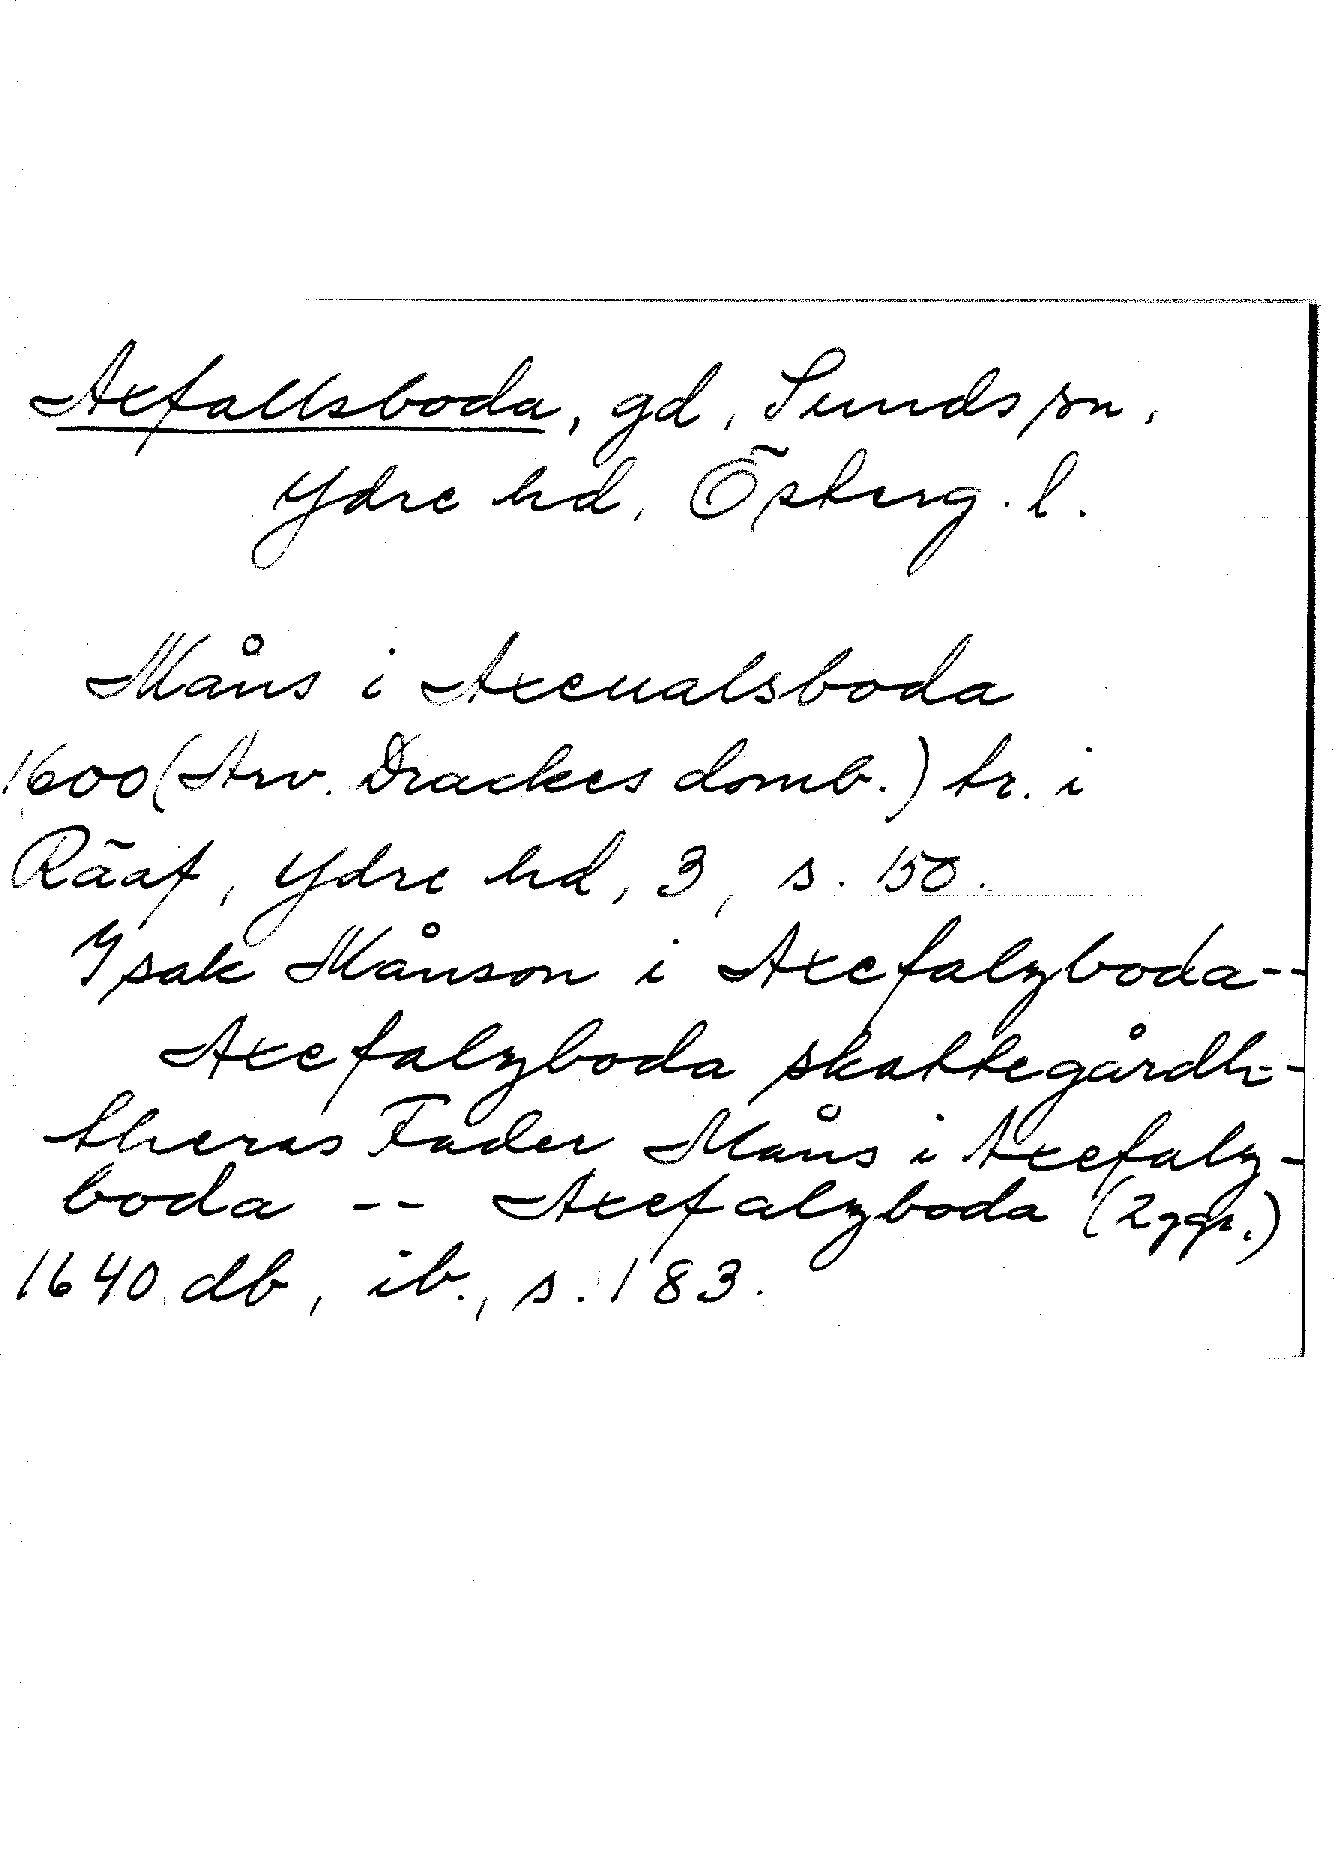 Axfallsboda, gd, Sunds sn,
Ydre hd, Österg. l.
Måns i Axeualsboda
1600 (Arv. Drackes domb.) tr. i
Rääf, Ydre hd, 3, s. 150.
Isak Månson i Axefalzboda--
Axefalzboda skattegårdh--
theras Fader Måns i Axefalz-
boda -- Axefalzboda (2 ggr.)
1640 db, ib., s. 183.